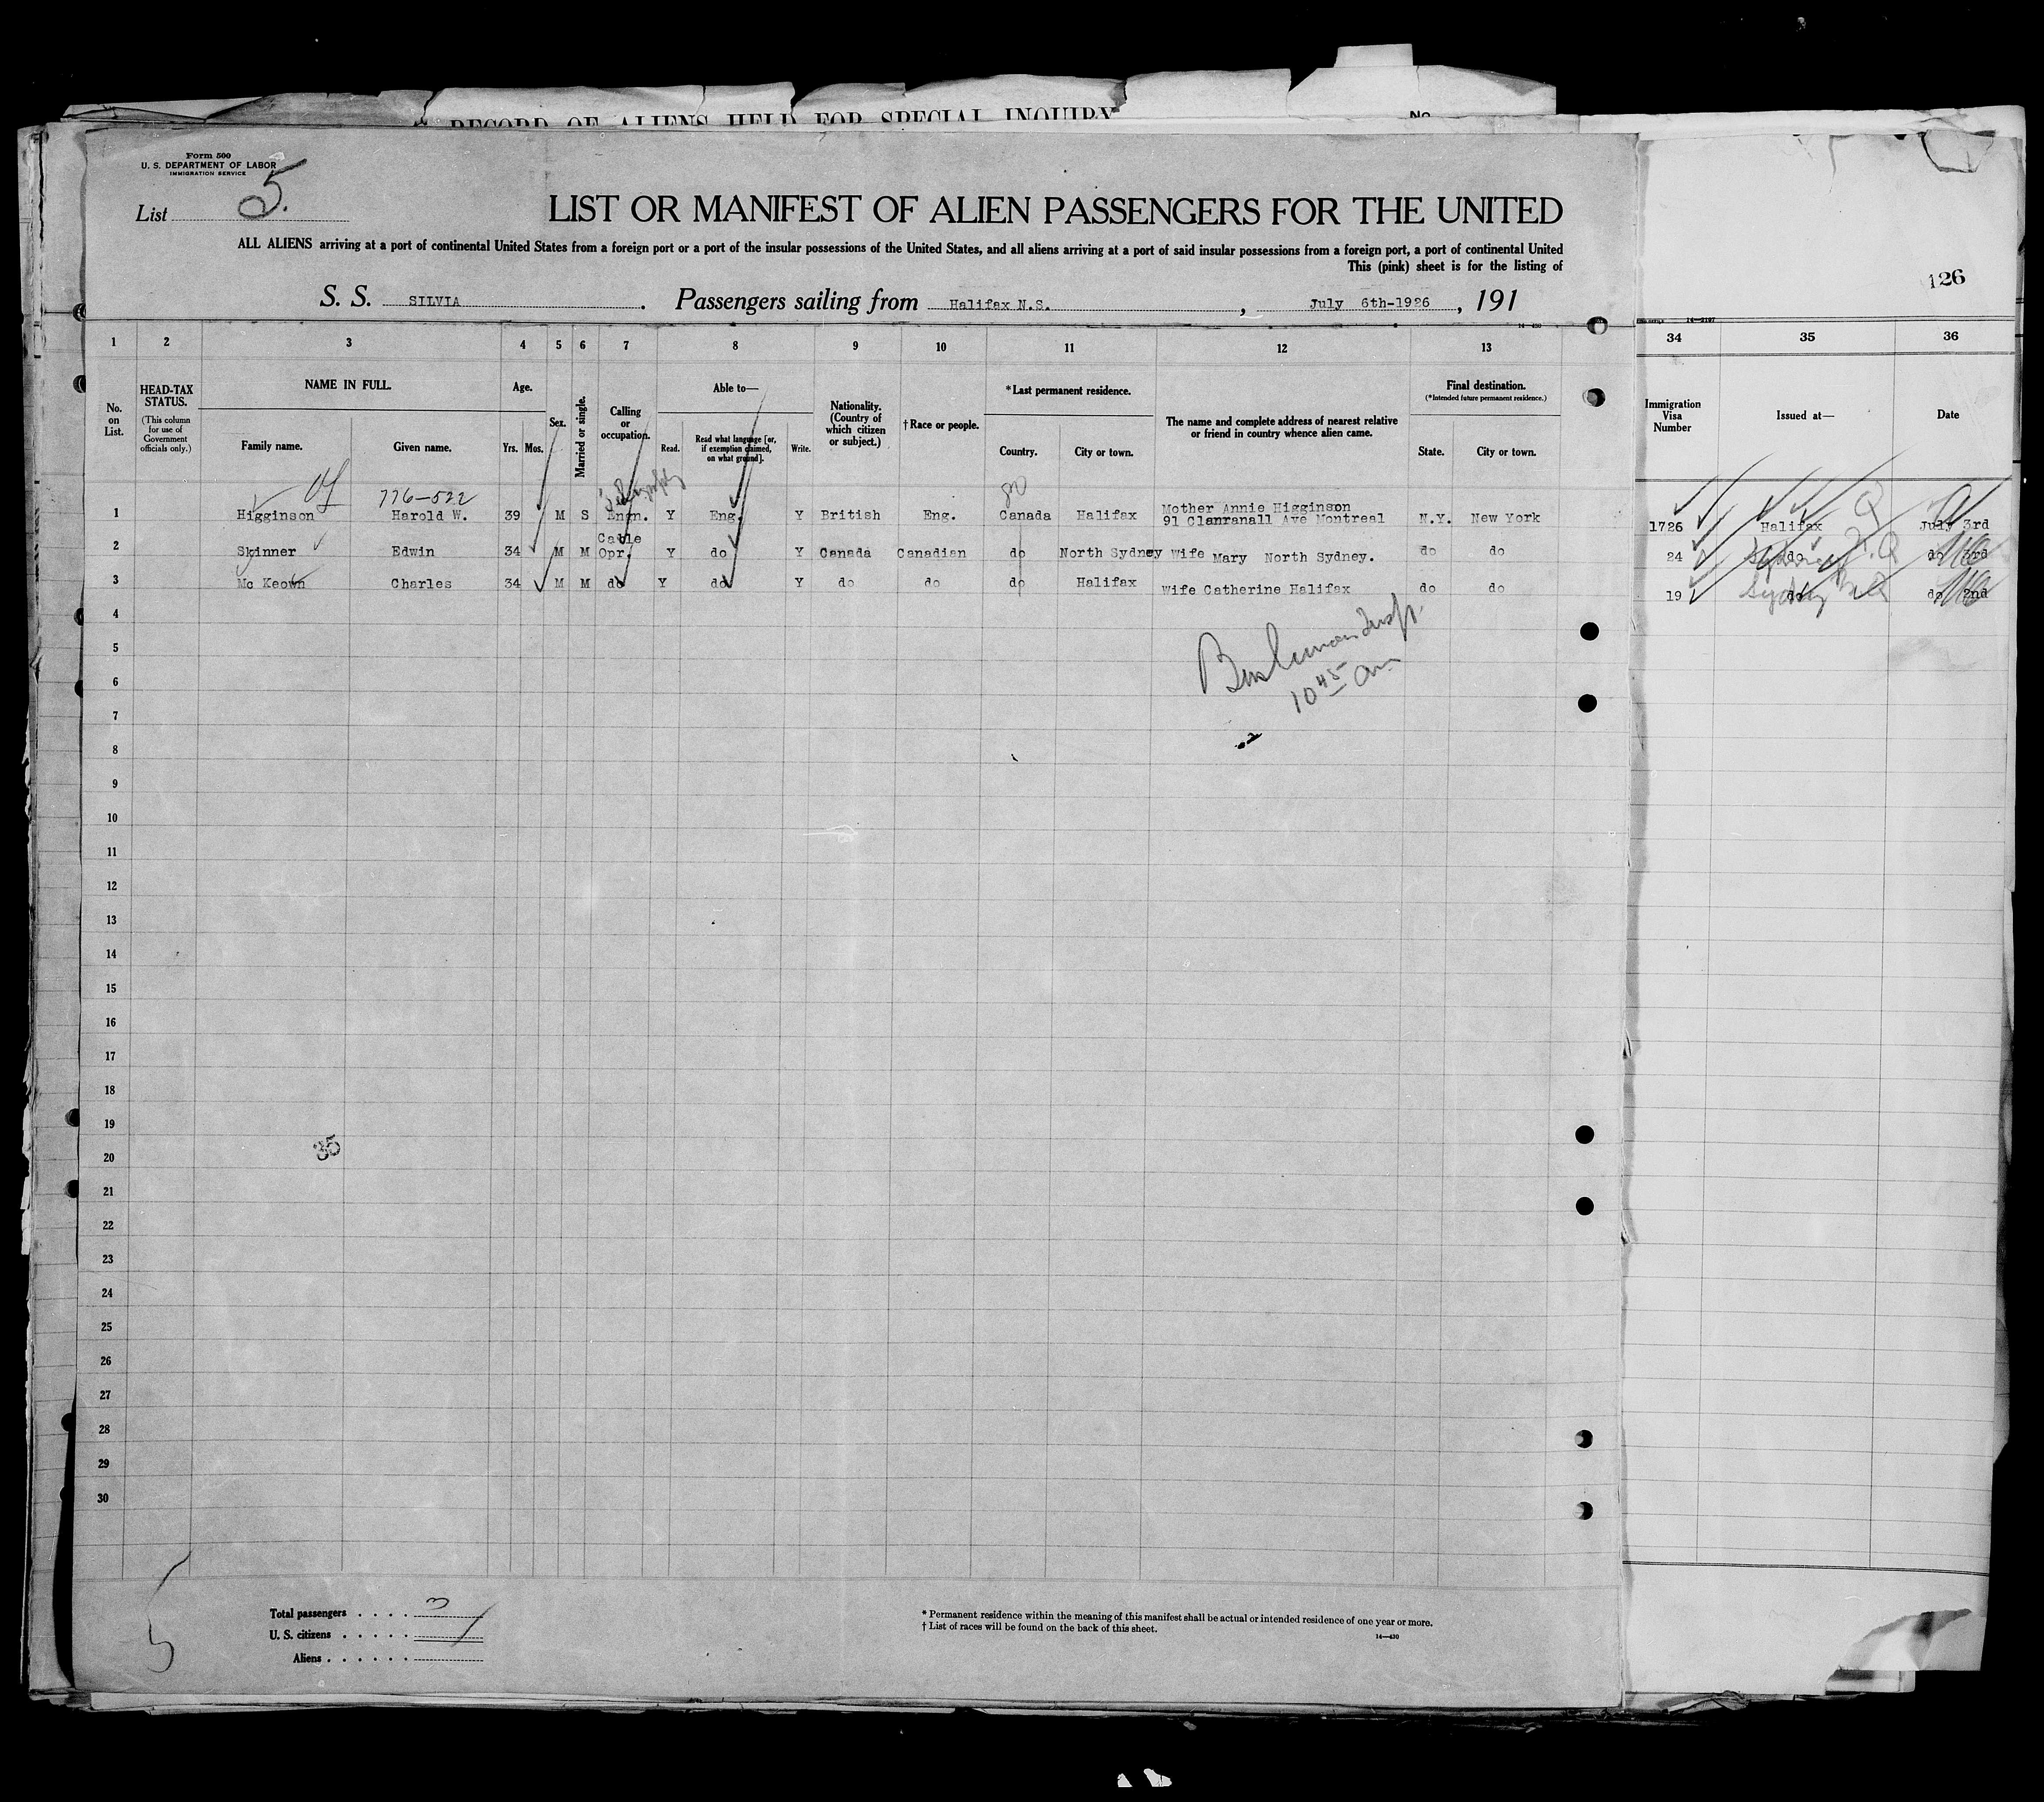 RECORD OF ALIENS HELD FOR SPECIAL INQUIRY
No
Form 500
U. S. DEPARTMENT OF LABOR
IMMIGRATION SERVICE
List 5.
LIST OR MANIFEST OF ALIEN PASSENGERS FOR THE UNITED
ALL ALIENS arriving at a port of continental United States from a foreign port or a port of the insular possessions of the United States, and all aliens arriving at a port of said insular possessions from a foreign port, a port of continental United
This (pink) sheet is for the listing of
126
S. S. SILVIA. Passengers sailing from Halifax N.S., July 6th-1926, 191
14-430
1 2 3 4 5 6 7 8 9 10 11 12 13 34 35 36
No. on List.
HEAD-TAX STATUS.
(This column for use of Government officials only.)
NAME IN FULL.
Family name. Given name.
Age.
Yrs. Mos.
Sex.
Married or single.
Calling or occupation.
Able to—
Read. Read what language [or, if exemption claimed, on what ground]. Write.
Nationality. (Country of which citizen or subject.)
† Race or people.
*Last permanent residence.
Country. City or town.
The name and complete address of nearest relative or friend in country whence alien came.
Final destination.
(*Intended future permanent residence.)
State. City or town.
Immigration Visa Number
Issued at—
Date
776-522
1 Higginson Harold W. 39 M S Engn. Y Eng. Y British Eng. Canada Halifax Mother Annie Higginson 91 Clanranall Ave Montreal N.Y. New York 1726 Halifax July 3rd
2 Skinner Edwin 34 M M Cable Opr. Y do Y Canada Canadian do North Sydney Wife Mary North Sydney. do do 24 do do 3rd
3 Mc Keown Charles 34 M M do Y do Y do do do Halifax Wife Catherine Halifax do do 19 do Sydney do 2nd
4
5
6
10 45 am
7
8
9
10
11
12
13
14
15
16
17
18
19
35
20
21
22
23
24
25
26
27
28
29
30
5
Total passengers . . . . 3
U. S. citizens . . . . .
Aliens . . . . . .
* Permanent residence within the meaning of this manifest shall be actual or intended residence of one year or more.
† List of races will be found on the back of this sheet.
14—430